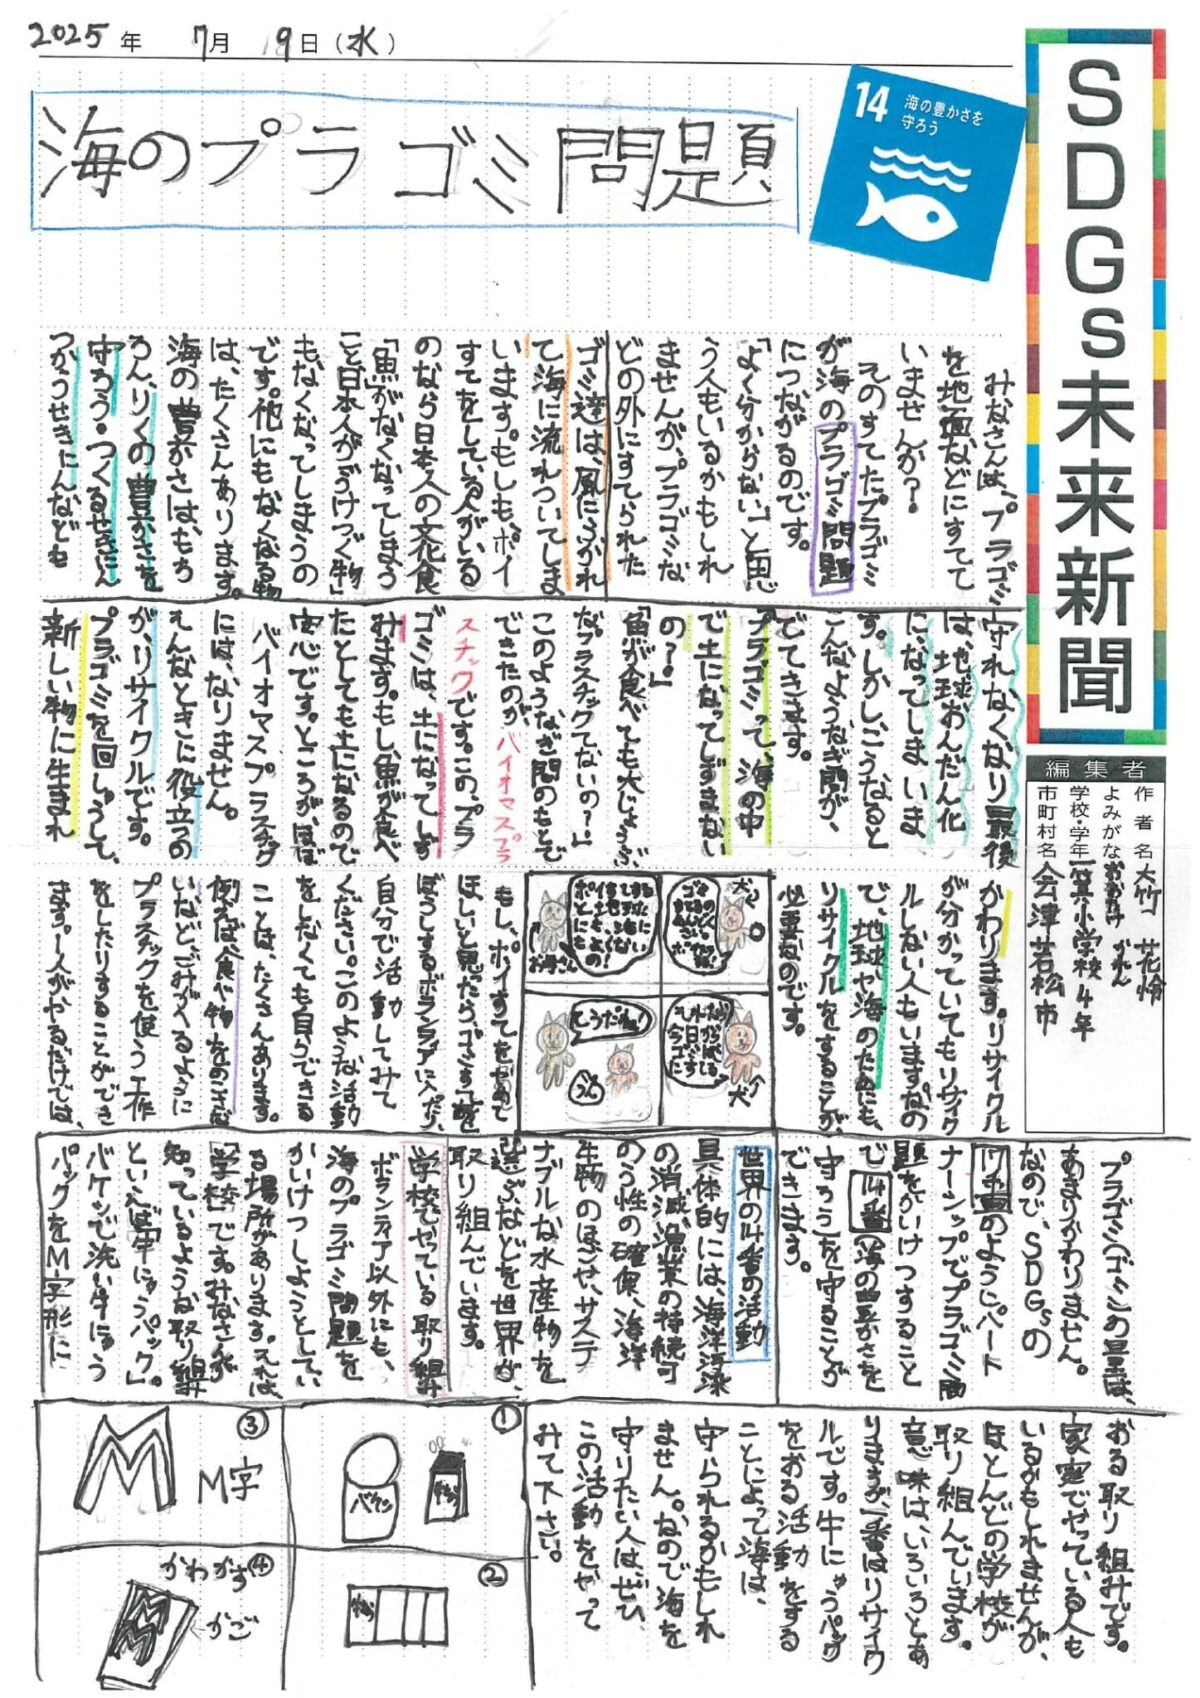 2025年 7月 9日(水)
SDGs未来新聞
14 海の豊かさを
守ろう
海のプラゴミ問題
編集者
作者名 大竹 花怜
よみがな おおたけ かれん
学校・学年 一箕小学校4年
市町村名 会津若松市
みなさんは、プラゴミ
を地面などにすてて
いませんか?
そのすてたプラゴミ
が海のプラゴミ問題
につながるのです。
「よく分からない」と思
う人もいるかもしれ
ませんが、プラゴミな
どの外にすてられた
ゴミ達は、風にふかれ
て海に流れついてしま
います。もしも、ポイ
すてをしている人がいる
のなら日本人の文化食
「魚」がなくなってしまう
こと日本人がうけつぐ物
もなくなってしまうの
です。他にもなくなる物
は、たくさんあります。
海の豊かさは、もち
ろん、りくの豊かさを
守ろう・つくるせきにん
つかうせきにんなども
守れなくなり最後
は、地球おんだん化
に、なってしまいま
す。しかし、こうなると
こんなようなぎ問が、
でてきます。
「プラゴミって、海の中
で土になってしずまない
の?」
「魚が食べても大じょうぶ
なプラスチックてないの?」
このようなぎ問のもとで
できたのが、バイオマスプラ
スチックです。この、プラ
ゴミは、土になってしず
みます。もし、魚が食べ
たとしても土になるので
安心です。ところが、ほぼ
バイオマスプラスチック
には、なりません。
そんなときに役立つの
が、リサイクルです。
プラゴミを回しゅうして、
新しい物に生まれ
かわります。リサイクル
が分かっていてもリサイク
ルしない人もいます。なの
で、地球や海のためにも、
リサイクルをすることが
必要なのです。
犬
お母さん
そうだね!
うん
犬
もし、ポイすてをやめて
ほしいと思ったら、ゴミすてを
ぼうしするボランティアに入ったり、
自分で活動してみて
ください。このような活動
をしなくても自らできる
ことは、たくさんあります。
例えば、食べ物をのこさな
いなど、ごみがへるように
プラスチックを使う工作
をしたりすることができ
ます。一人がやるだけでは、
プラゴミ(ゴミ)の量は、
あまりかわりません。
なので、SDGsの
17番のようにパート
ナーシップでプラゴミ問
題をかいけつすること
で14番(海の豊かさを
守ろう)を守ることが
できます。
世界の14番の活動
具体的には、海洋汚染
の消減、漁業の持続可
のう性の確保、海洋
生物のほごや、サステ
ナブルな水産物を
選ぶなどを世界が、
取り組んでいます。
学校でやっている取り組み
ボランティア以外にも、
海のプラゴミ問題を
かいけつしようとしてい
る場所があります。それは
「学校」です。みなさんが
知っているような取り組み
といえば「牛にゅうパック」。
バケツで洗い牛にゅう
パックをM字形に
おる取り組みです。
家庭でやっている人も
いるかもしれませんが、
ほとんどの学校が
取り組んでいます。
意味は、いろいろとあ
りますが、一番はリサイク
ルです。牛にゅうパック
をおる活動をする
ことによって海は、
守られるかもしれ
ません。なので海を
守りたい人は、ぜひ、
この活動をやって
みて下さい。
①
バケツ
②
③
M字
④
かわかす
かご